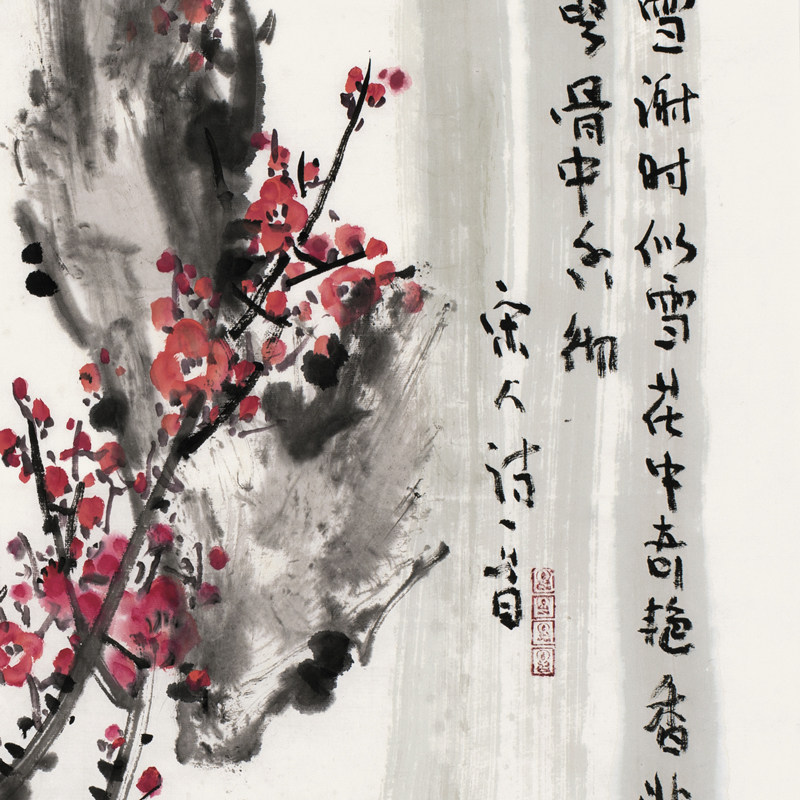 雪谢时似雪花中奇艳香
骨中香彻
宋人诗一首